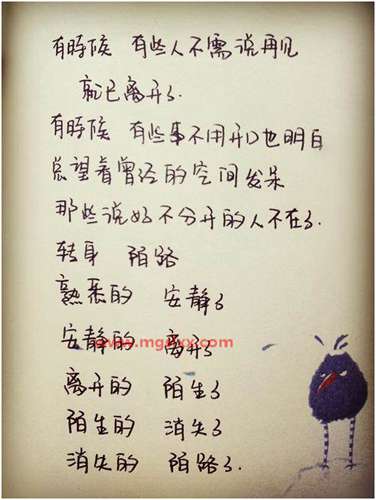 有時候 有些人不需说再见
就已离开了.
有時候 有些事不用开口也明白
总望着曾经的空间发呆
那些说好不分开的人不在了.
转身 陌路
熟悉的 安静了
安静的 离开了
离开的 陌生了
陌生的 消失了
消失的 陌路了.